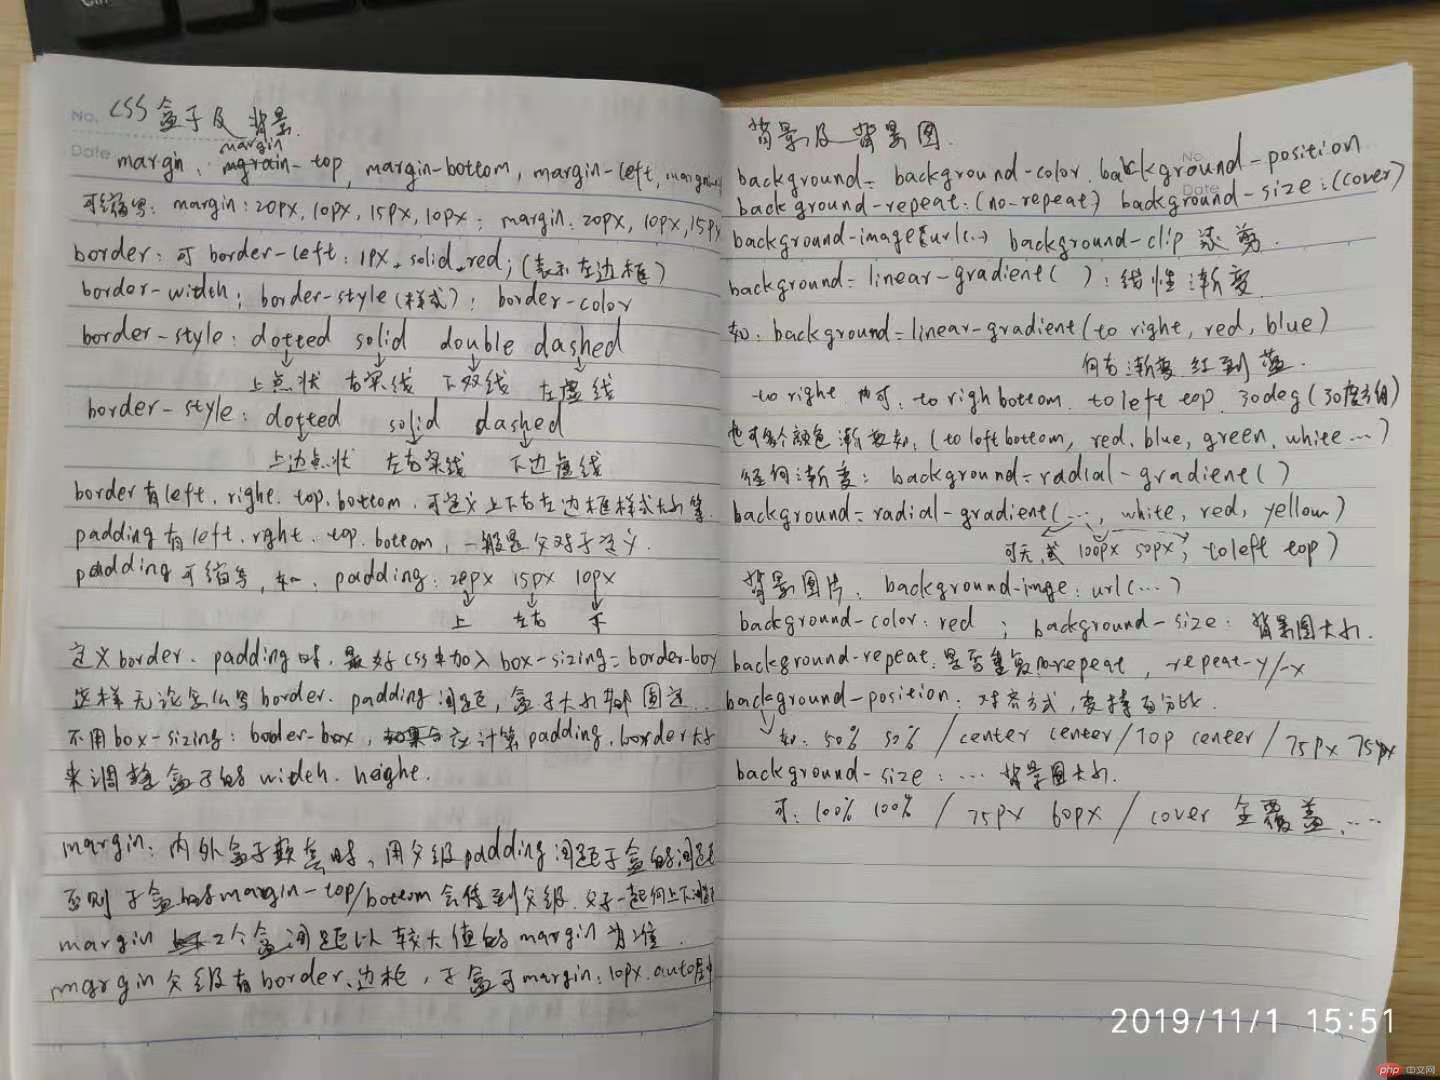 No.
CSS盒子及背景.
Date
margin
margin、mgrain-top, margin-bottom, margin-left,
可缩写: margin: 20px, 10px, 15px, 10px; margin: 20px, 10px, 15px
border: 可 border-left: 1px_solid_red; (表示左边框)
border-width; border-style(样式); border-color
border-style: dotted solid double dashed
上点状 右实线 下双线 左虚线
border-style: dotted solid dashed
上边点状 左右实线 下边虚线
border有left、right、top、bottom、可定义上下右左边框样式大小等.
padding有left、right、top、bottom, 一般是父对子定义.
padding可缩写, 如: padding: 20px 15px 10px
上 左右 下
定义border、padding时, 最好css中加入box-sizing=border-box
这样无论怎么写border、padding间距, 盒子大小都固定..
不用box-sizing: border-box, 应计算padding、border大小
来调整盒子的width、height.
margin: 内外盒子嵌套时, 用父级padding间距子盒的间距
否则子盒的margin-top/bottom会传到父级. 父子一起向上下
margin 2个盒间距以较大值的margin为准.
margin父级有border、边框, 子盒可margin: 10px auto
背景及背景图.
No.
Date
background= background-color、background-position
background-repeat: (no-repeat) background-size: (cover)
background-image: url(..) background-clip 裁剪.
background= linear-gradient( ): 线性渐变
如: background=linear-gradient(to right, red, blue)
向右渐变 红到蓝.
to right 也可: to righ bottom、to left top、30deg(30度方向)
也可多个颜色渐变如: (to left bottom, red, blue, green, white …)
径向渐变: background=radial-gradient( )
background= radial-gradient(…, white, red, yellow)
可无, 或 100px 50px; to left top)
背景图片: background-imge: url(…)
background-color: red ; background-size: 背景图大小.
background-repeat: 是否重复no-repeat, repeat-y/-x
background-position: 对齐方式, 支持百分比.
如: 50% 50% / center center / Top center / 75px 75px
background-size: … 背景图大小.
可: 100% 100% / 75px 60px / cover 全覆盖、…
2019/11/1 15:51
php 中文网